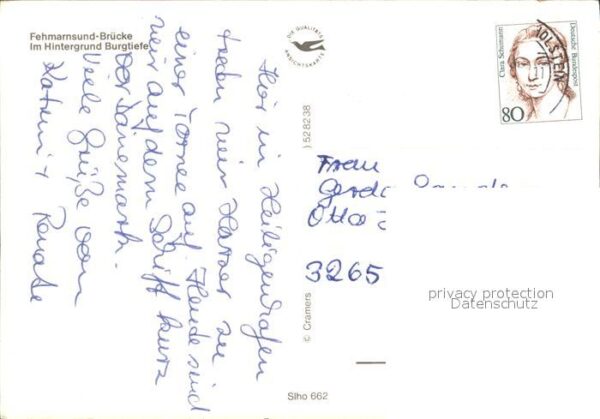 Fehmarnsund-Brücke
Im Hintergrund Burgtiefe
DIE QUALITÄTS
ANSICHTSKARTE
Clara Schumann
Deutsche Bundespost
80
OLSTEN
Hier in Heiligenhafen
treten wir Hörner zu
einer Tornee auf. Heute sind
wir auf dem Schiff kurz
vor Dänemark.
Viele Grüße von
Katrin + Renate
) 528238
© Cramers
Frau
Gerda
Otto
3265
privacy protection
Datenschutz
Slho 662